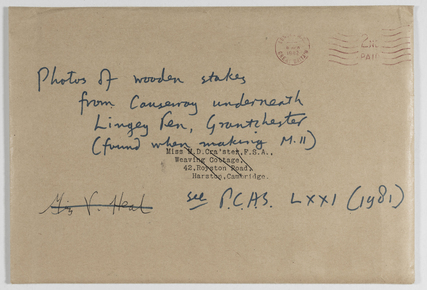 2½d
PAID
Photos of wooden stakes
from Causeway underneath
Lingey Fen, Grantchester
(found when making M.11)
Miss M.D.Cra'ster,F.S.A.,
Weaving Cottage,
42,Royston Road,
Harston,Cambridge.
see P.C.A.S. LXXI (1981)
Miss V. Heal